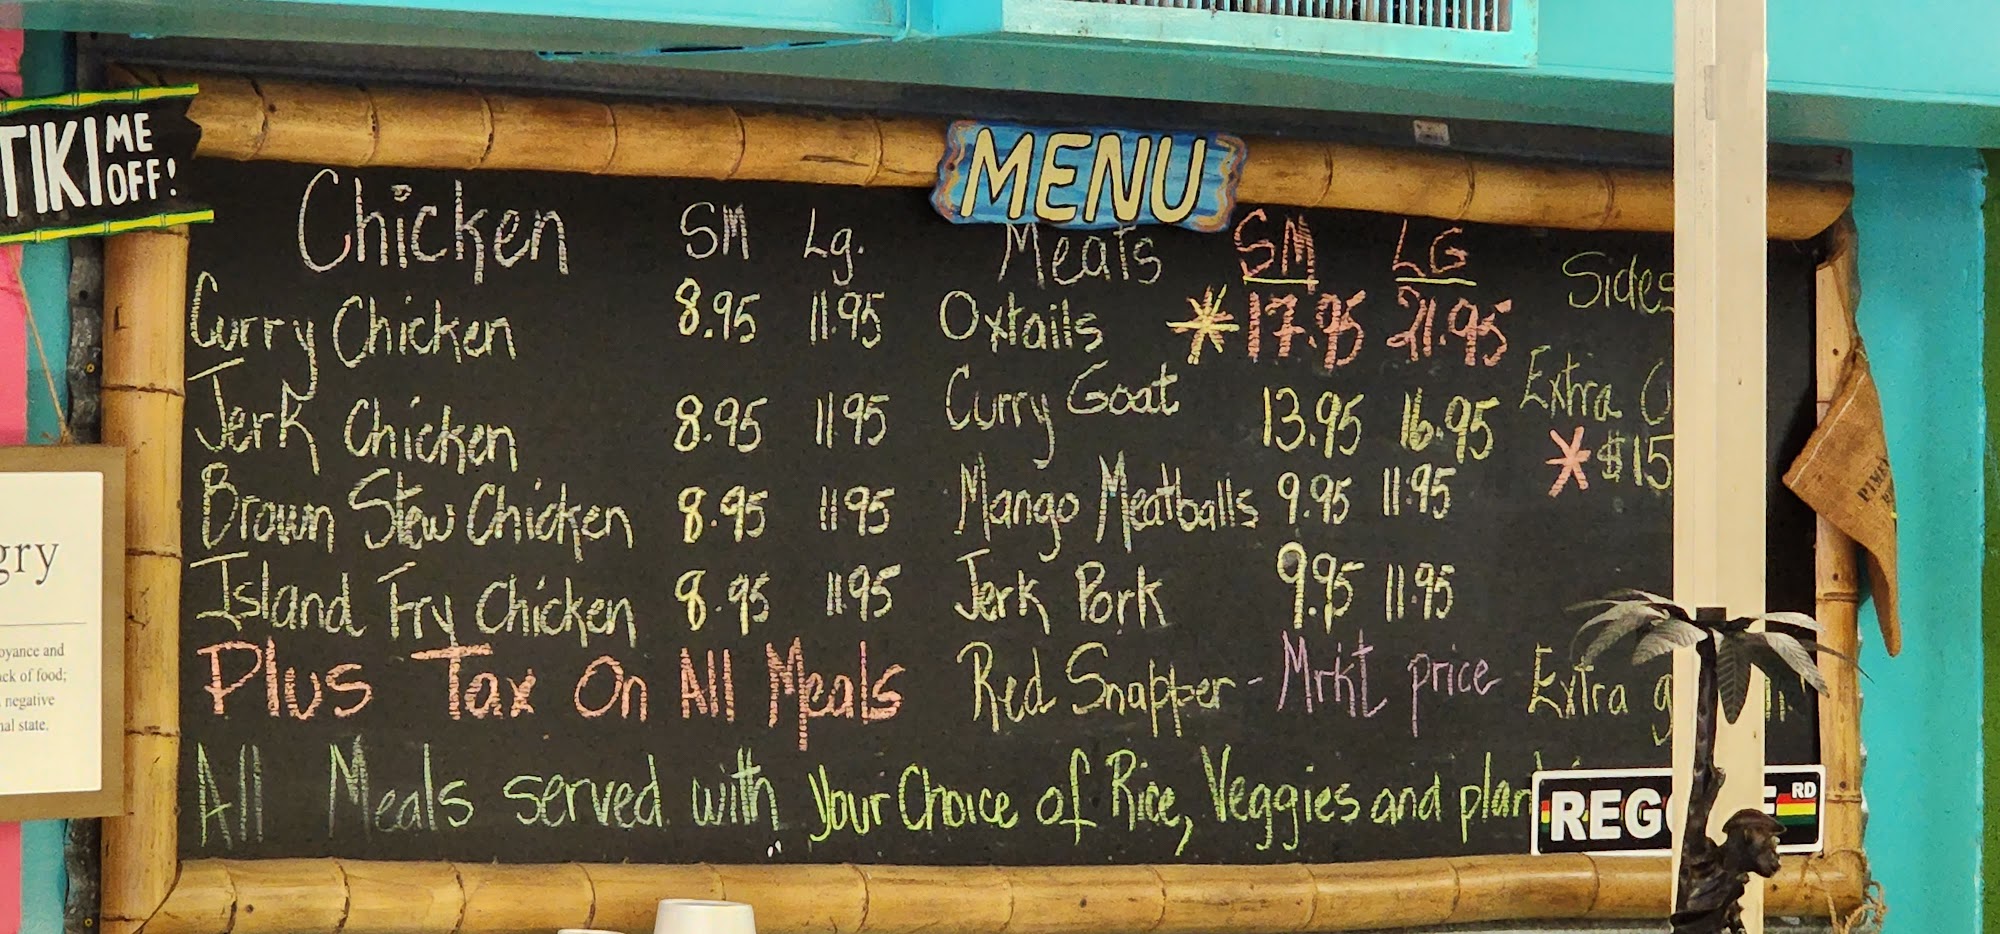 TIKI ME OFF!
MENU
Chicken SM Lg.
Curry Chicken 8.95 11.95
Jerk Chicken 8.95 11.95
Brown Stew Chicken 8.95 11.95
Island Fry Chicken 8.95 11.95
Plus Tax On All Meals
Meats SM LG
Oxtails *17.95 21.95
Curry Goat 13.95 16.95
Mango Meatballs 9.95 11.95
Jerk Pork 9.95 11.95
Red Snapper - Mrkt price
Sides
Extra
*$15
Extra
All Meals served with your Choice of Rice, Veggies and plan
REG E RD
gry
oyance and
ack of food;
negative
nal state.